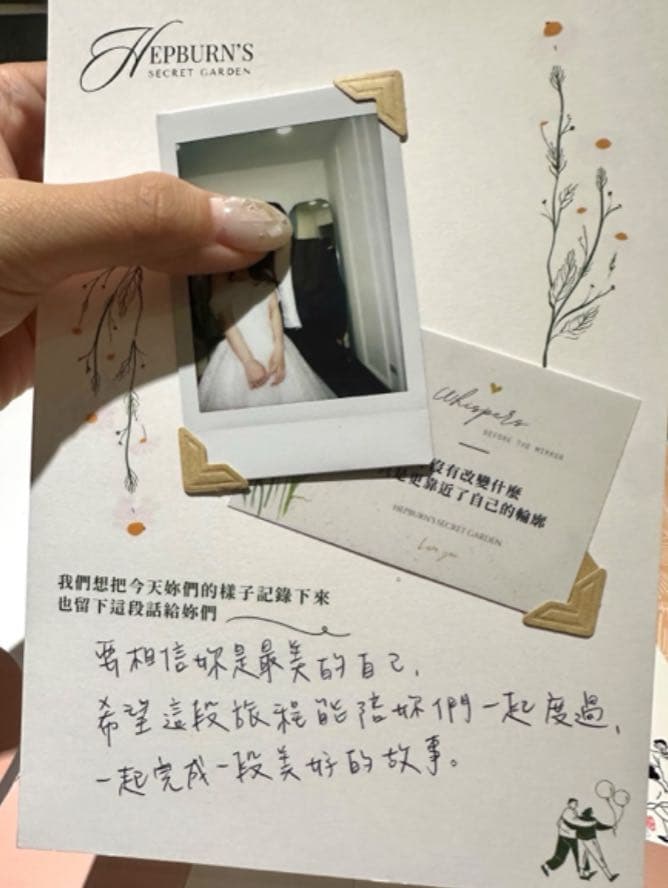 HEPBURN'S
SECRET GARDEN
Whispers
BEFORE THE MIRROR
沒有改變什麼
是更靠近了自己的輪廓
HEPBURN'S SECRET GARDEN
我們想把今天妳們的樣子記錄下來
也留下這段話給妳們
要相信妳是最美的自己,
希望這段旅程能陪妳們一起度過,
一起完成一段美好的故事。